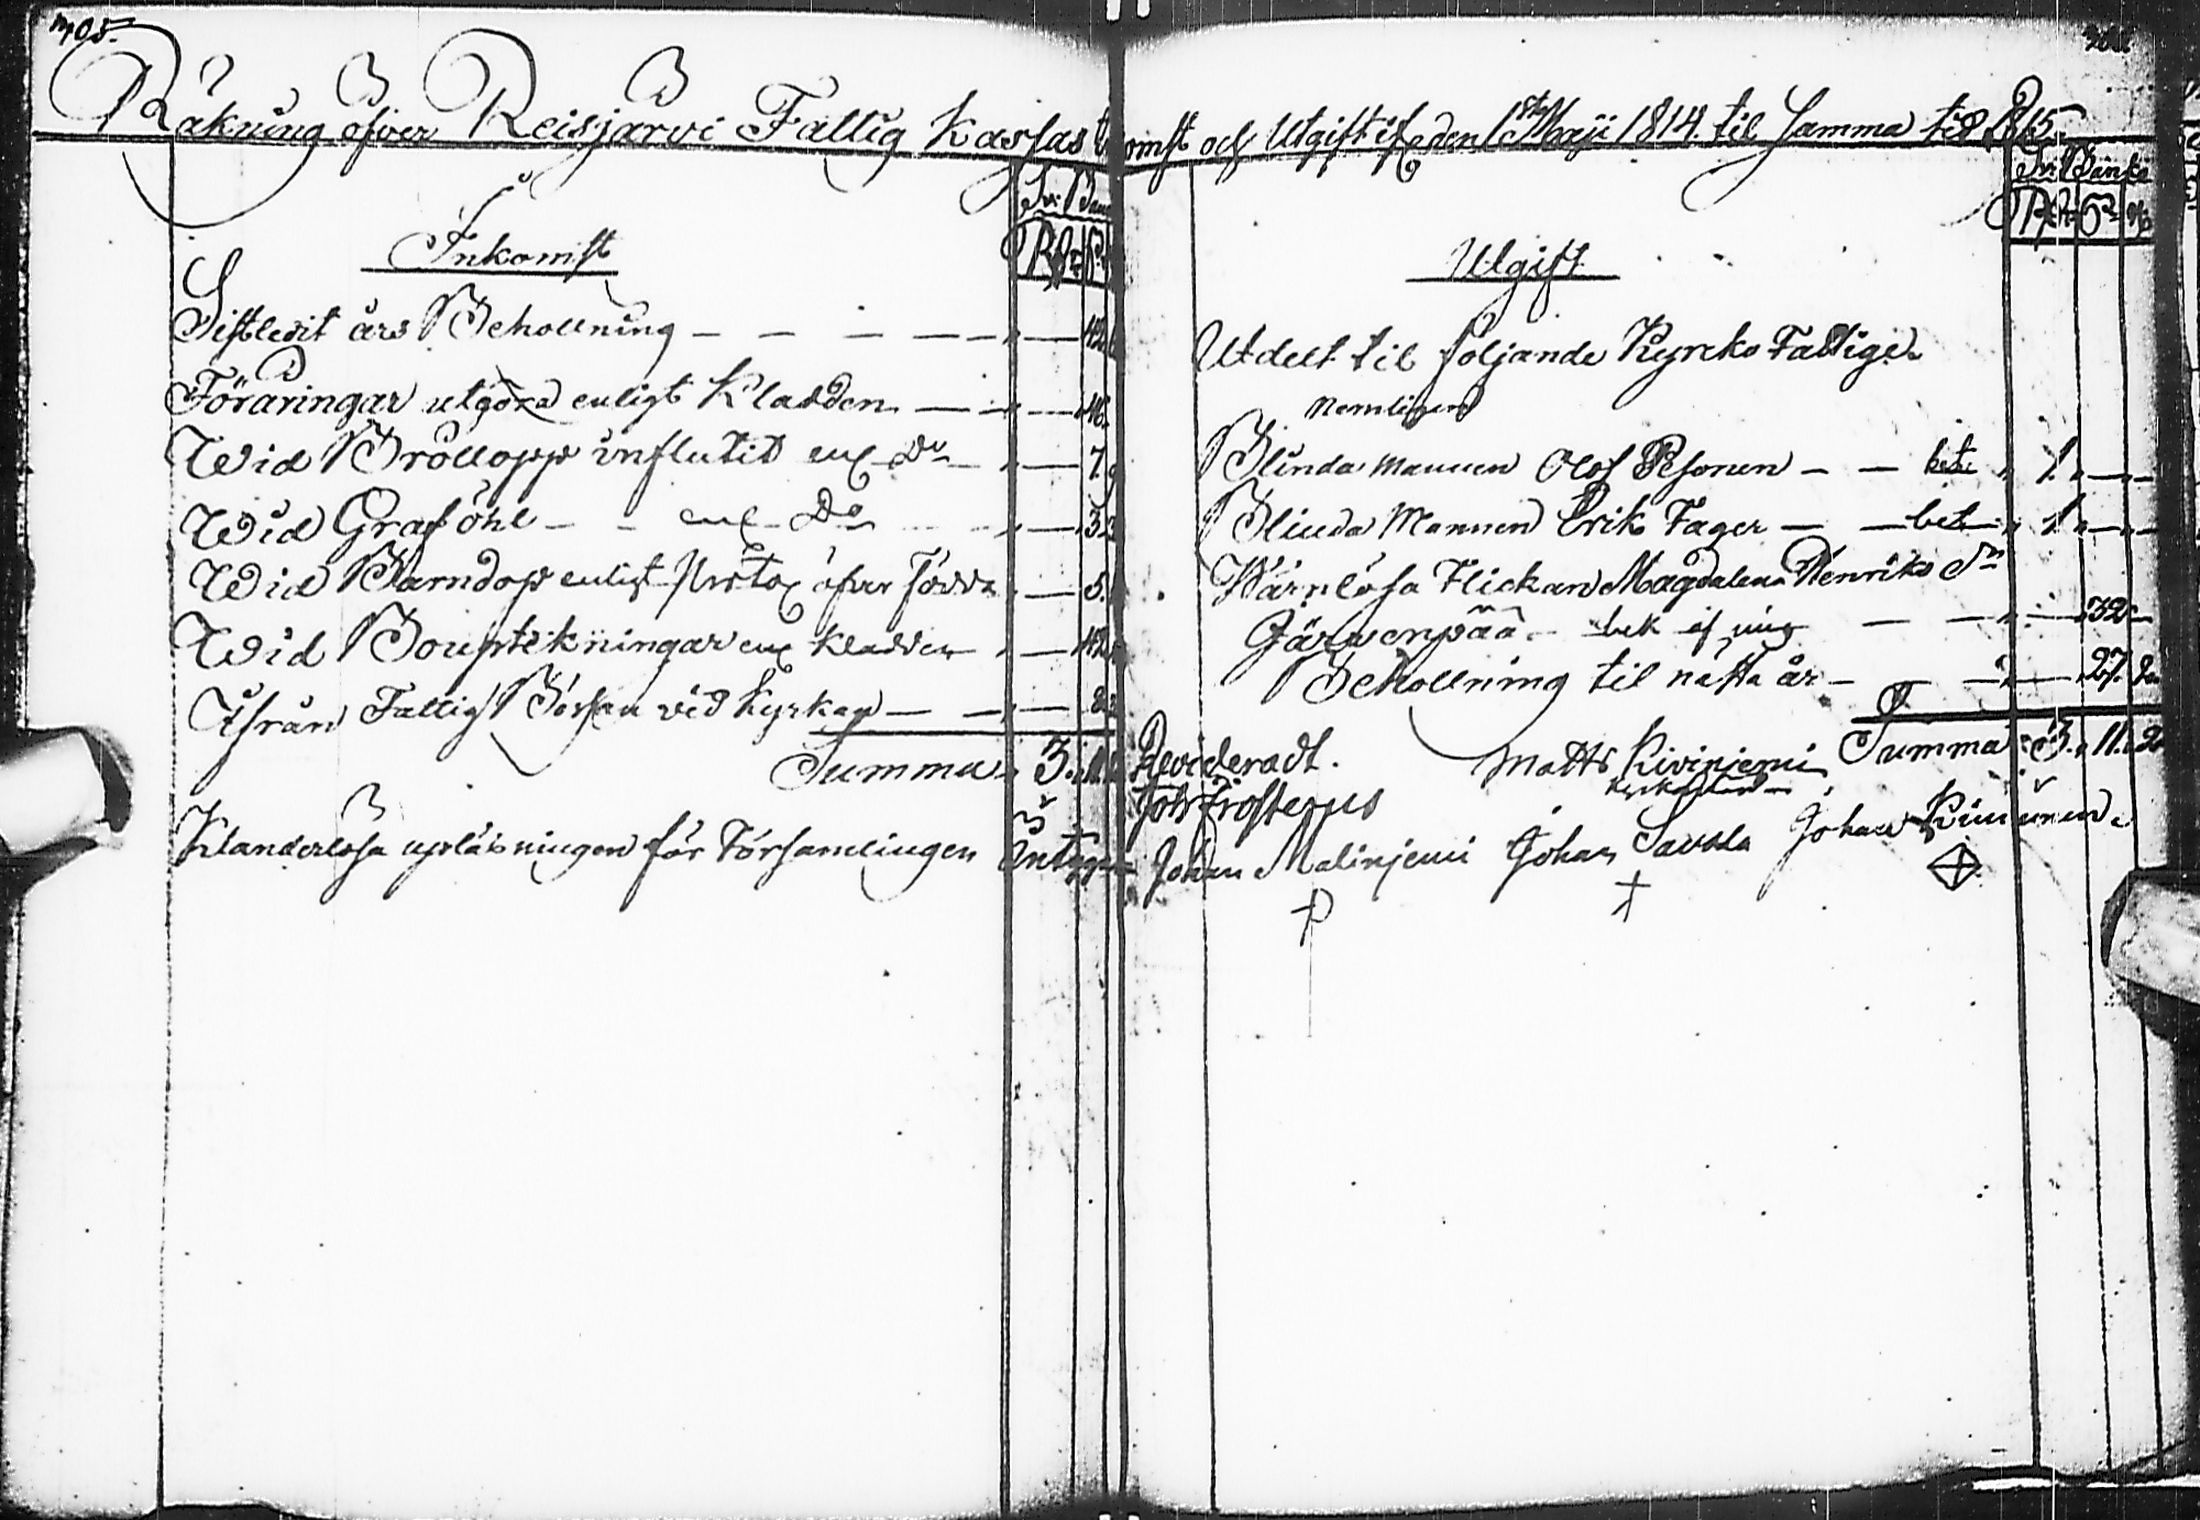 305.
Räkning öfver Reisjärvi Fattig Kassas Inkomst och Utgift ifrån den 1sta Maji 1814. til samma tid 1815.
Sv: Banco
RD. S.
Inkomst
Sistledit års Behollning — — — — — 42.
Föräringar utgöra enligt Kladden — — — 46.
Wid Bröllopp influtit enl. Do — — 7.
Wid Graföhl — — enl. Do — 3.
Wid Barndop enligt öfver födde — 5.
Wid Boupteckningar enl. Kladden — 42.
Ifrån Fattig Börsan vid Kyrkan — — — 2.
Summa 3. 11.
Klanderlösa upläsningen för Församlingen
Sv: Banco
RD. S. rs
Utgift
Utdelt til följande Kyrcko Fattige
Nemligen
Blinda Mannen Olof Pesonen — — bet. 1. — —
Blinda Mannen Erik Fager — — bet. 1. — —
Wärnlösa Flickan Magdalena Henriks Dr
Järvenpää — — — 32 —
Behollning til nästa år — — 27. 2
Summa 3. 11. 2
Revideradt.
Joh Frosterus
Matts Kivinjemi
Johan Malinjemi Johan Savola Johan Kinnunen